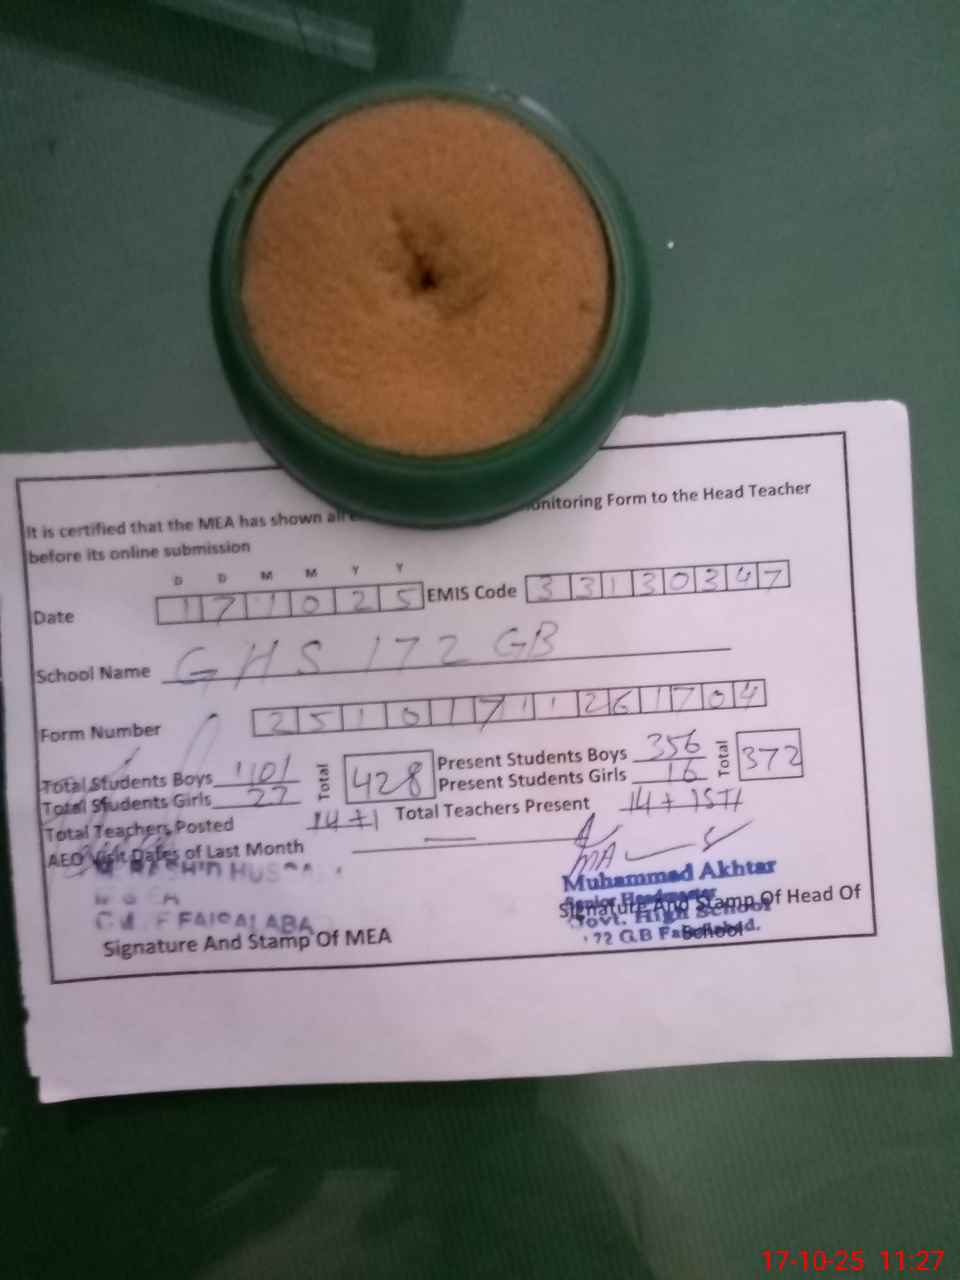 It is certified that the MEA has shown all e onitoring Form to the Head Teacher
before its online submission
D D M M Y Y
Date 1 7 1 0 2 5 EMIS Code 3 3 1 3 0 3 4 7
School Name GHS 172 GB
Form Number 2 5 1 0 1 7 1 1 2 6 1 7 0 4
Total Students Boys 401 Total 428 Present Students Boys 356 Total 372
Total Students Girls 27 Present Students Girls 16
Total Teachers Posted 14+1 Total Teachers Present 14+1STH
AEO Visit Dates of Last Month
Muhammad Akhtar
Senior Headmaster
Govt. High School
172 G.B Faisalabad.
FAISALABA
Signature And Stamp Of MEA
Signature And Stamp Of Head Of
School
17-10-25 11:27